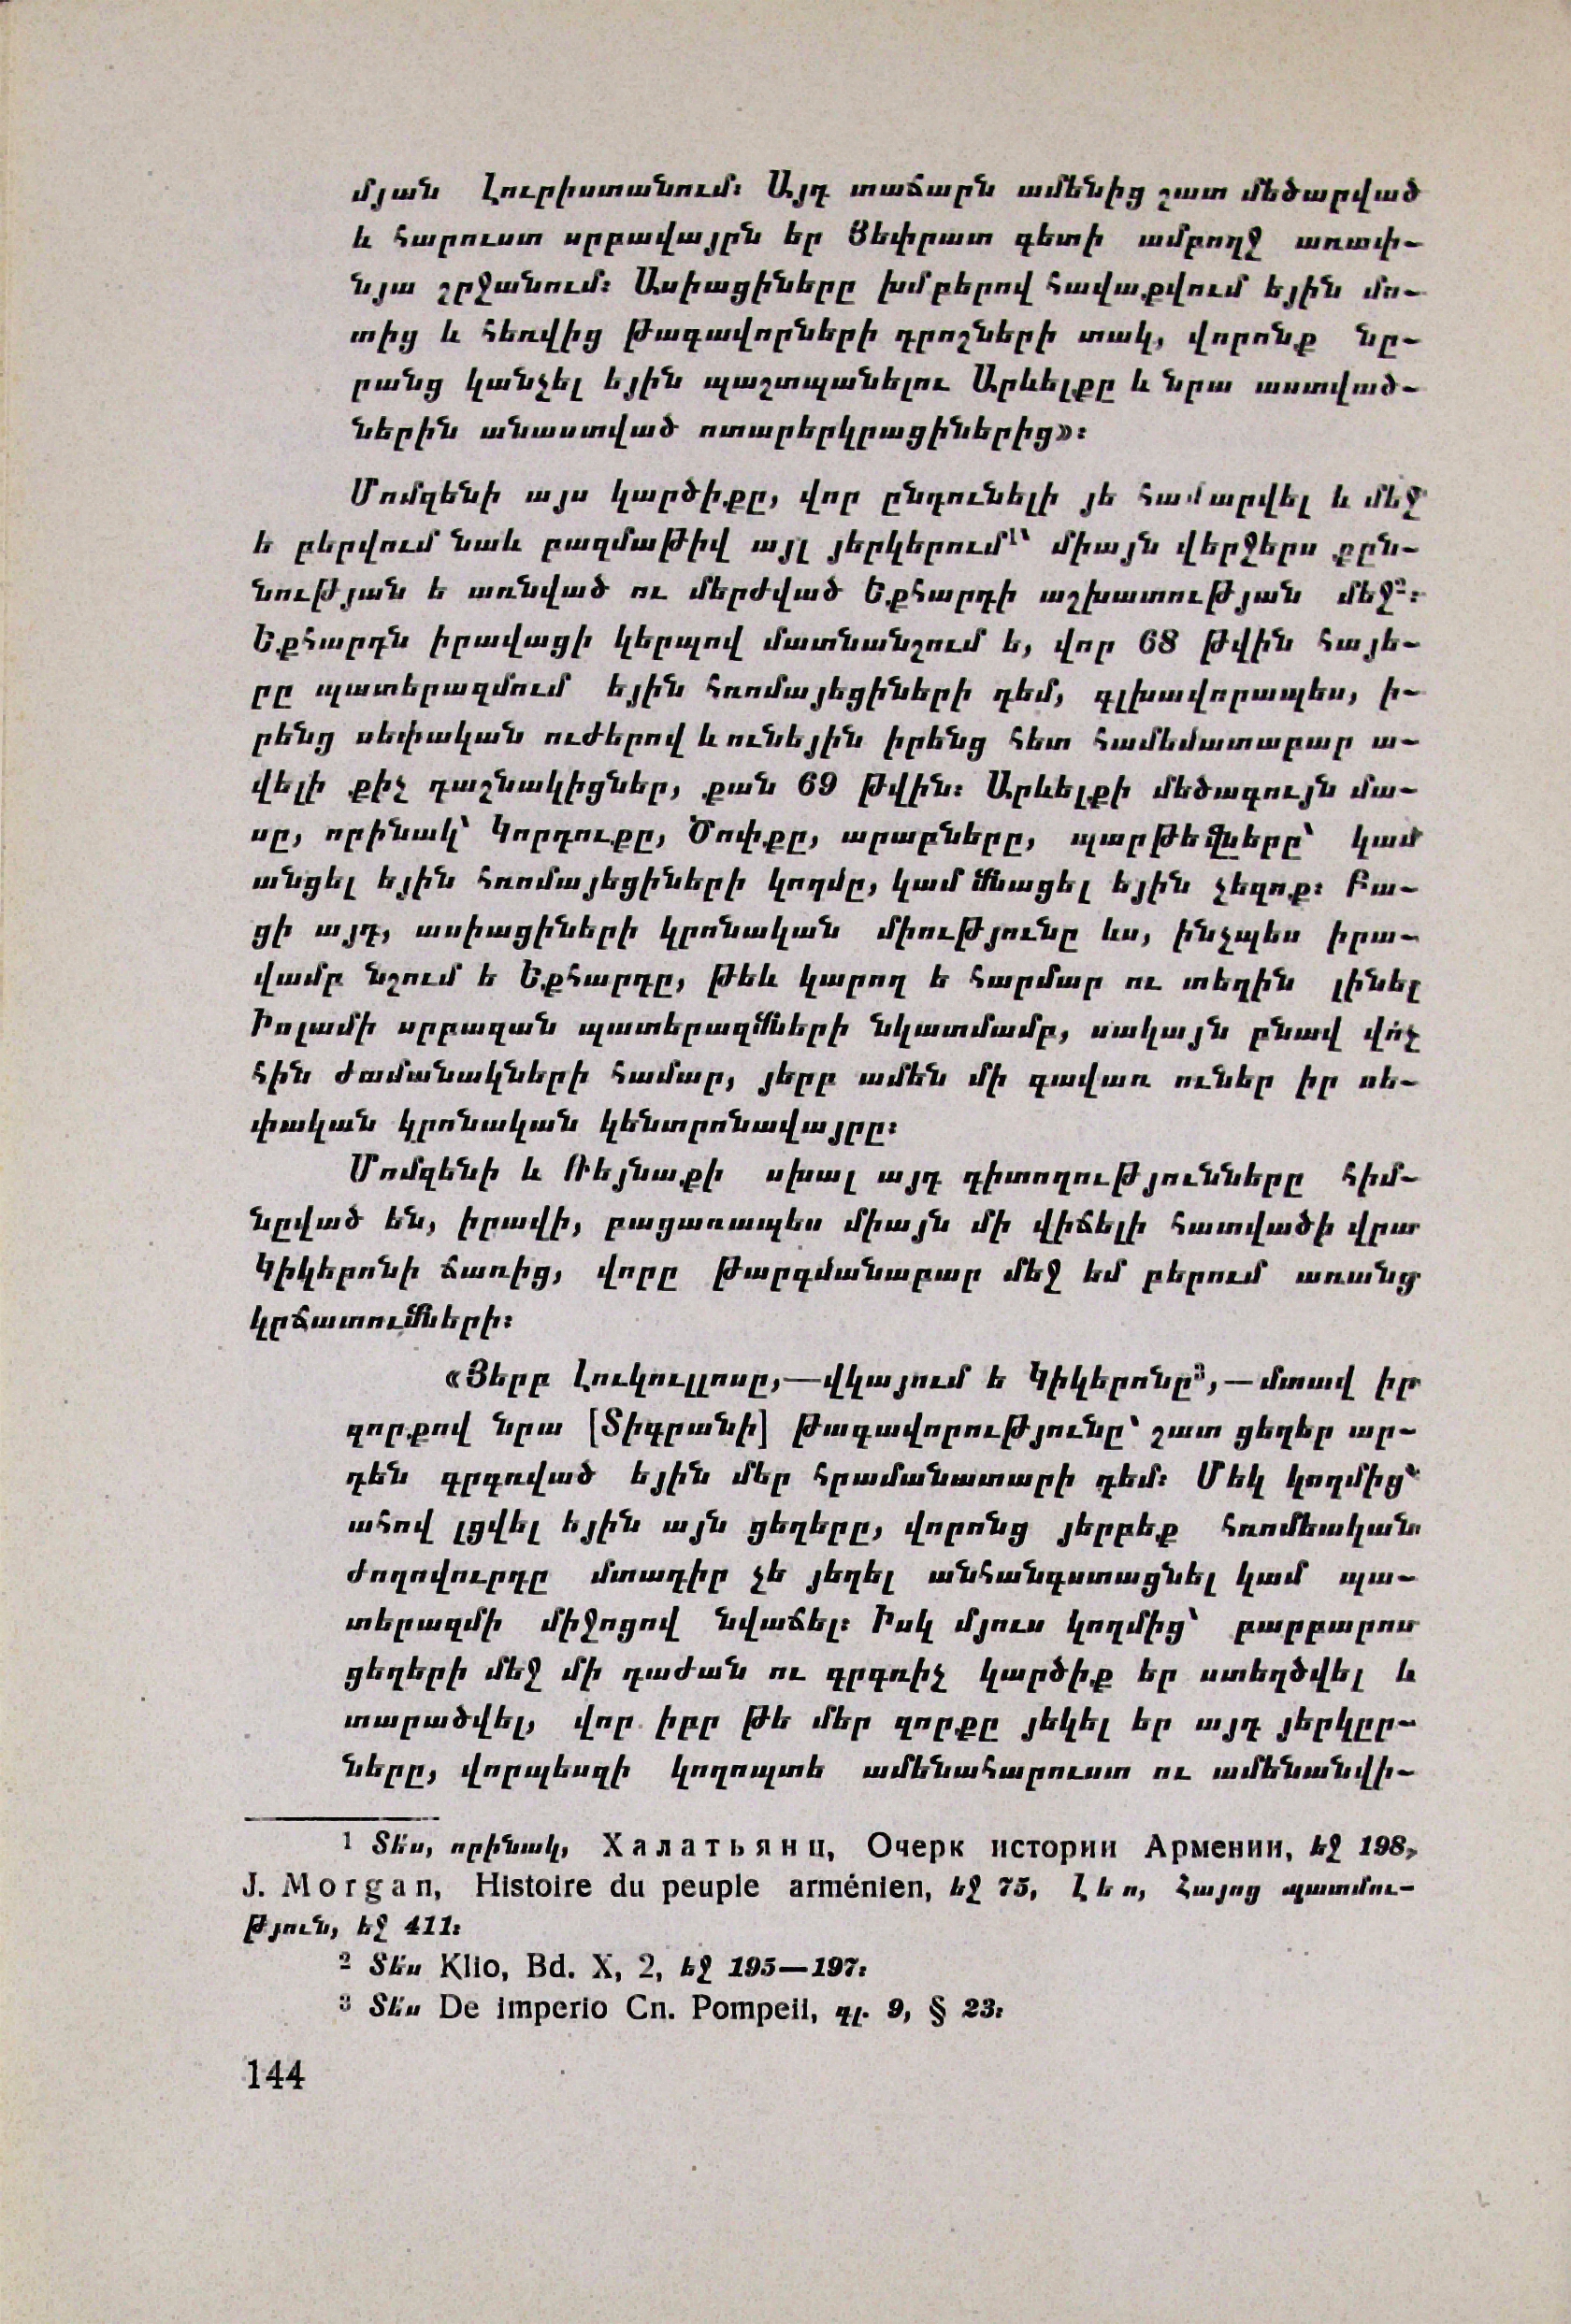 մյան Լուրիստանում։ Այդ տաճարն ամենից շատ մեծարված
և հարուստ սրբավայրն եր Յեփրատ գետի ամբողջ առափ-
նյա շրջանում։ Ասիացիները խմբերով հավաքվում եյին մո-
տից և հեռվից թագավորների դրոշների տակ, վորոնք նը-
րանց կանչել եյին պաշտպանելու Արևելքը և նրա աստված-
ներին անաստված ոտարերկրացիներից»։
Մոմզենի այս կարծիքը, վոր ընդունելի յե համարվել և մեջ
ե բերվում նաև բազմաթիվ այլ յերկերում¹՝ միայն վերջերս քըն-
նության ե առնված ու մերժված Եքհարդի աշխատության մեջ²։
Եքհարդն իրավացի կերպով մատնանշում ե, վոր 68 թվին հայե-
րը պատերազմում եյին հռոմայեցիների դեմ, գլխավորապես, ի-
րենց սեփական ուժերով և ունեյին իրենց հետ համեմատաբար ա-
վելի քիչ դաշնակիցներ, քան 69 թվին։ Արևելքի մեծագույն մա-
սը, որինակ՝ Կորդուքը, Ծոփքը, արաբները, պարթևները՝ կամ
անցել եյին հռոմայեցիների կողմը, կամ մնացել եյին չեզոք։ Բա-
ցի այդ, ասիացիների կրոնական միությունը ևս, ինչպես իրա-
վամբ նշում ե Եքհարդը, թեև կարող ե հարմար ու տեղին լինել
Իսլամի սրբազան պատերազմների նկատմամբ, սակայն բնավ վո՛չ
հին ժամանակների համար, յերբ ամեն մի գավառ ուներ իր սե-
փական կրոնական կենտրոնավայրը։
Մոմզենի և Ռեյնաքի սխալ այդ դիտողությունները հիմ-
նըված են, իրավի, բացառապես միայն մի վիճելի հատվածի վրա
Կիկերոնի ճառից, վորը թարգմանաբար մեջ եմ բերում առանց
կրճատումների։
«Յերբ Լուկուլլոսը,—վկայում ե Կիկերոնը³,—մտավ իր
զորքով նրա [Տիգրանի] թագավորությունը՝ շատ ցեղեր ար-
դեն գրգռված եյին մեր հրամանատարի դեմ։ Մեկ կողմից՝
ահով լցվել եյին այն ցեղերը, վորոնց յերբեք հռոմեական
ժողովուրդը մտադիր չե յեղել անհանգստացնել կամ պա-
տերազմի միջոցով նվաճել։ Իսկ մյուս կողմից՝ բարբարոս
ցեղերի մեջ մի դաժան ու գրգռիչ կարծիք եր ստեղծվել և
տարածվել, վոր իբր թե մեր զորքը յեկել եր այդ յերկըր-
ները, վորպեսզի կողոպտե ամենահարուստ ու ամենանվի-
1 Տե՛ս, որինակ, Халатьянц, Очерк истории Армении, եջ 198,
J. Morgan, Histoire du peuple arménien, եջ 75, Լեո, Հայոց պատմու-
թյուն, եջ 411։
2 Տե՛ս Klio, Bd. X, 2, եջ 195—197։
3 Տե՛ս De imperio Cn. Pompeii, գլ. 9, § 23։
144